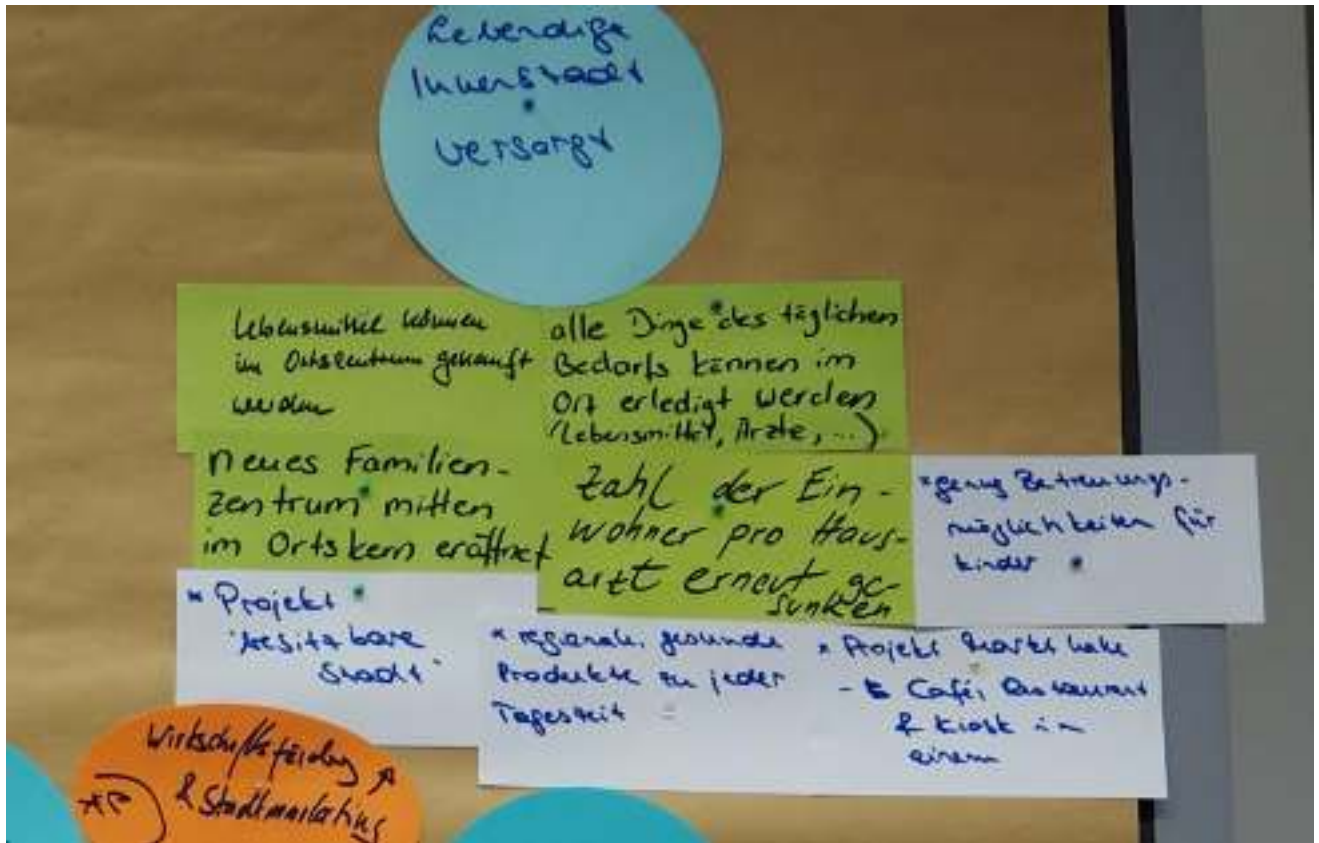 Lebendige
Innenstadt
versorgt
Lebensmittel können
im Ortszentrum gekauft
werden
alle Dinge des täglichen
Bedarfs können im
Ort erledigt werden
(Lebensmittel, Ärzte, ...)
Neues Familien-
zentrum mitten
im Ortskern eröffnet
Zahl der Ein-
wohner pro Haus-
arzt erneut ge-
sunken
* genug Betreuungs-
möglichkeiten für
Kinder
* Projekt
"besitzbare
Stadt"
* regionale, gesunde
Produkte zu jeder
Tageszeit
* Projekt Markthalle
Café, Restaurant
& Kiosk in
einem
Wirtschaftsförderung
& Stadtmarketing